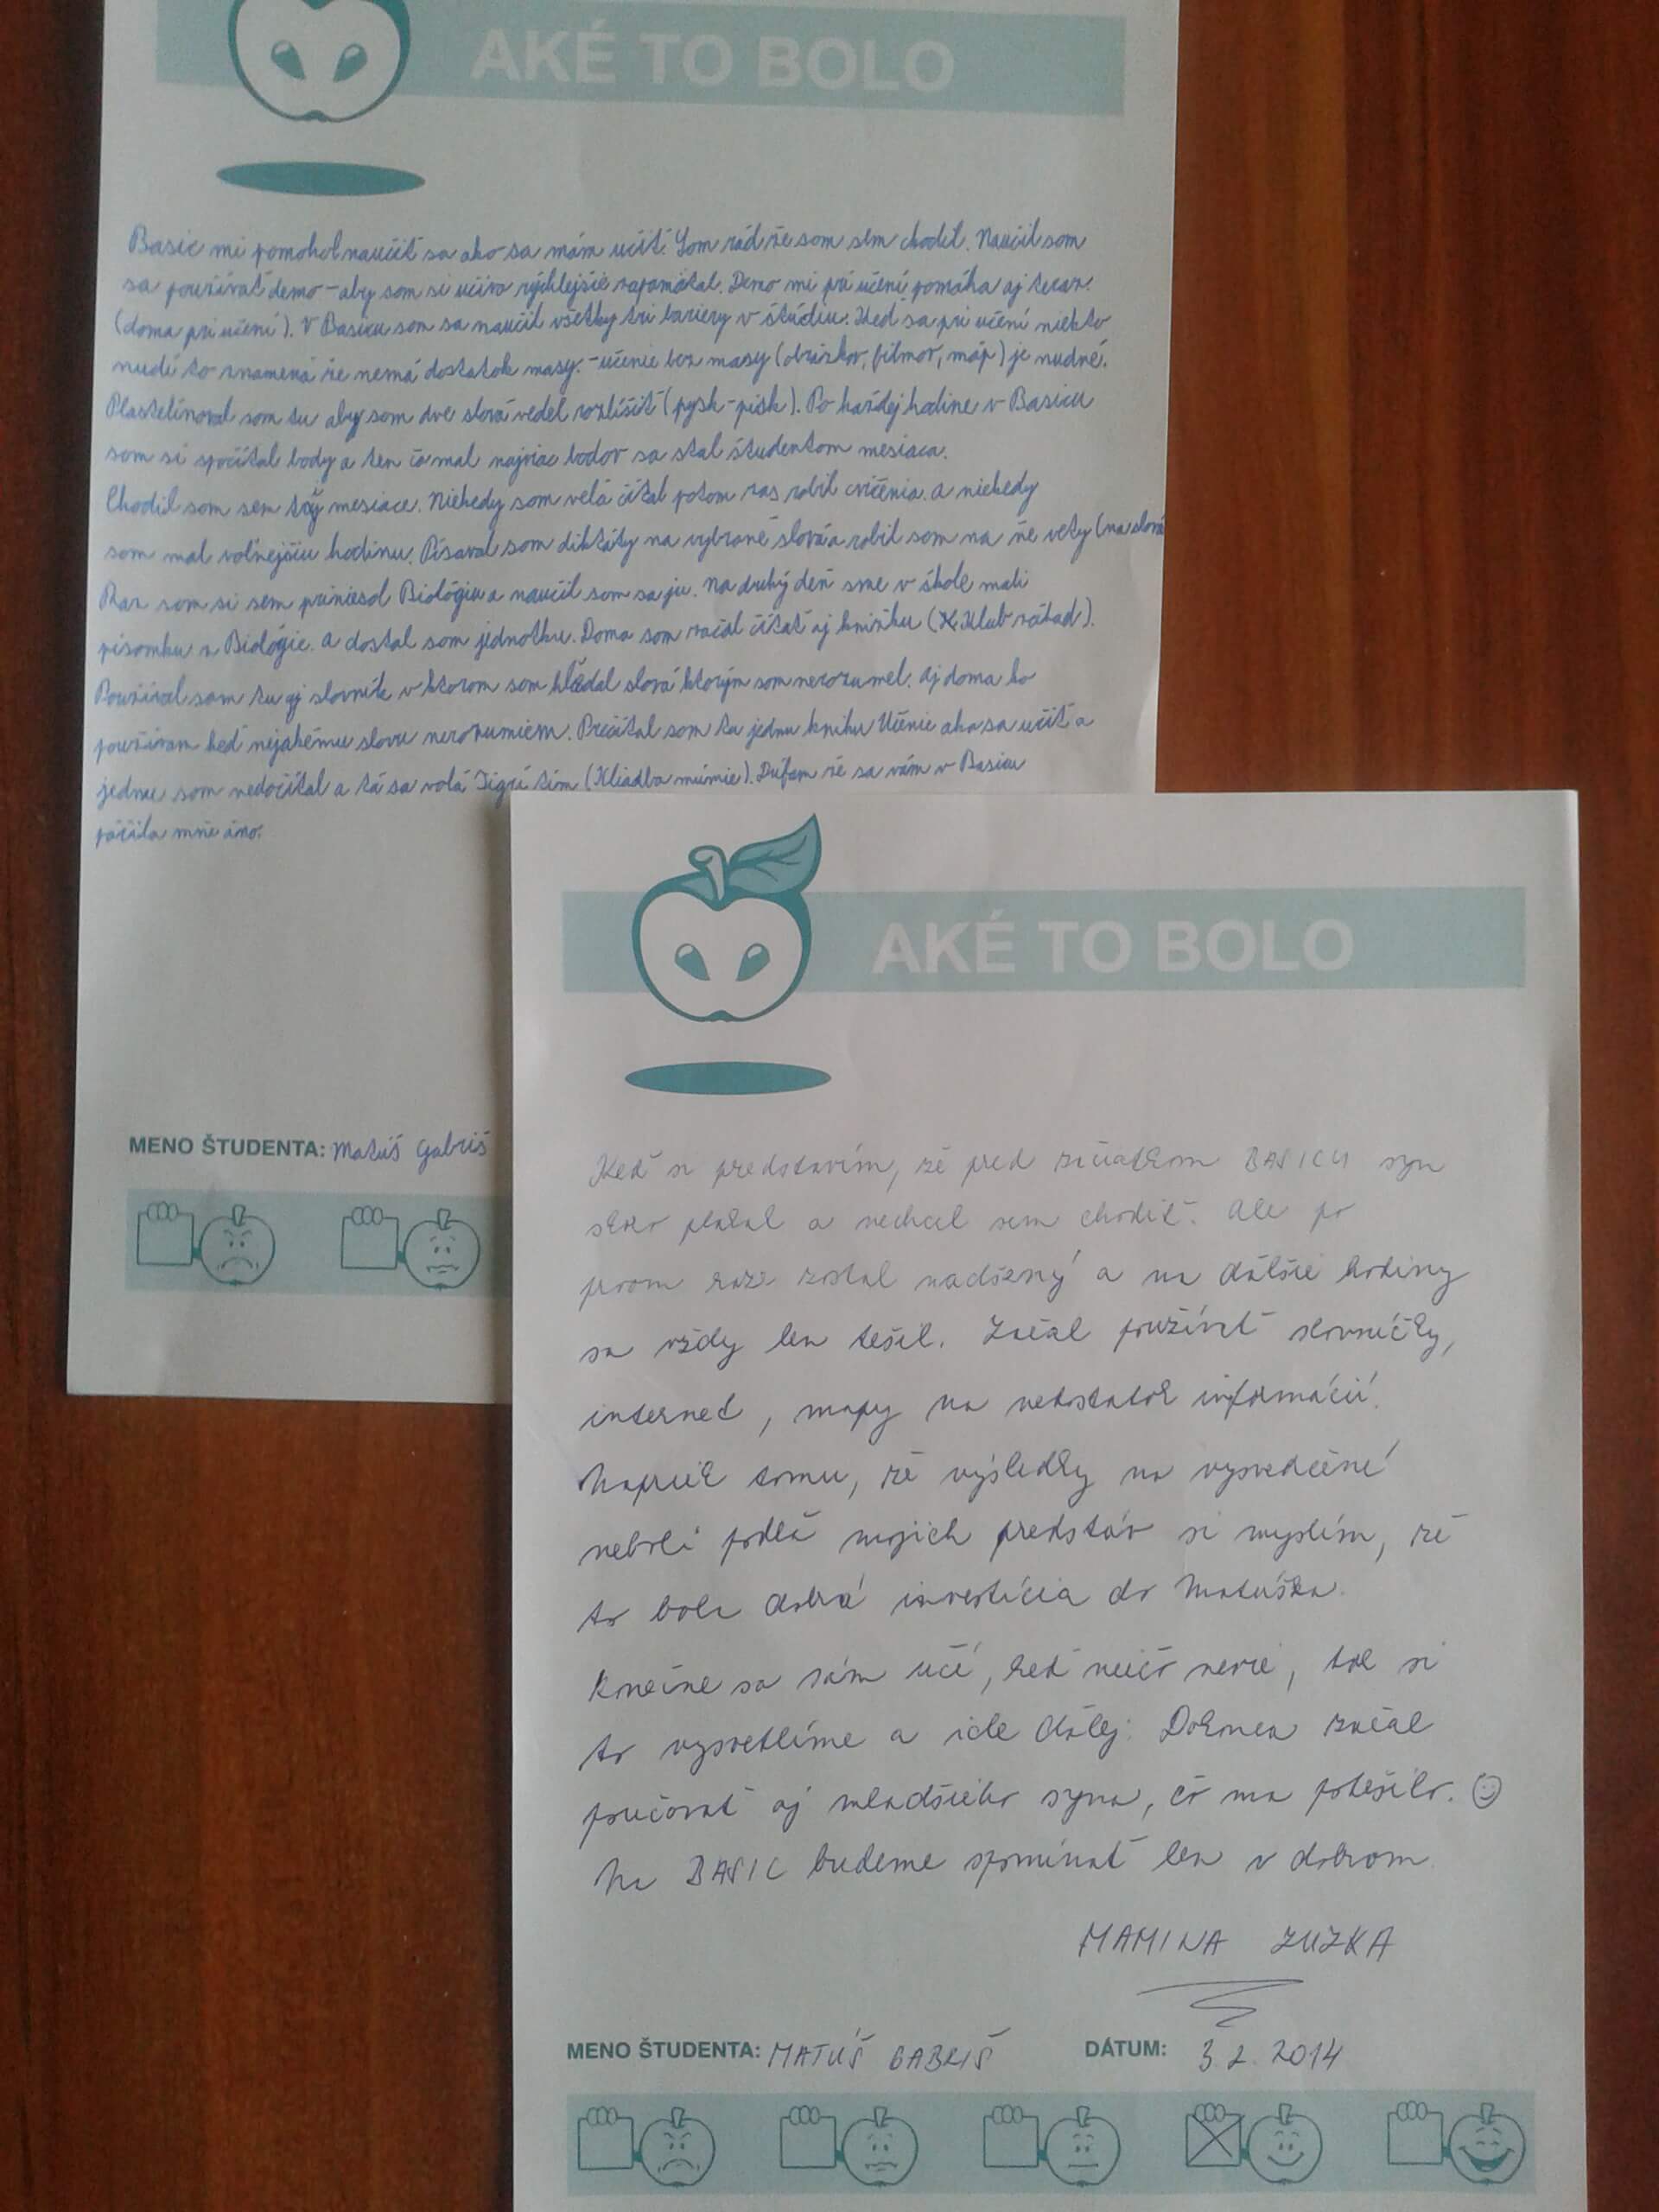 AKÉ TO BOLO
Basic mi pomohol naučiť sa ako sa mám učiť. Som rád že som sem chodil. Naučil som
sa používať demo - aby som si učivo rýchlejšie zapamätal. Demo mi pri učení pomáha aj teraz.
(doma pri učení). V Basicu som sa naučil všetky tri bariery v štúdiu. Keď sa pri učení niekto
nudí to znamená že nemá dostatok masy. - učenie bez masy (obrázkov, filmov, máp) je nudné.
Plastelínoval som tu aby som dve slová vedel rozlíšiť (pysk - pisk). Po každej hodine v Basicu
som si spočítal body a ten čo mal najviac bodov sa stal študentom mesiaca.
Chodil som sem tri mesiace. Niekedy som velá čítal potom zas robil cvičenia. a niekedy
som mal voľnejšiu hodinu. Písaval som diktáty na vybrané slová a robil som na ne vety (na slová
Raz som si sem priniesol Biológiu a naučil som sa ju. Na druhý deň sme v škole mali
písomku z Biológie. a dostal som jednotku. Doma som začal čítať aj knižku (Klub záhad).
Používal som tu aj slovník v ktorom som hľadal slová ktorým som nerozumel. Aj doma ho
používam keď nejakému slovu nerozumiem. Prečítal som tu jednu knihu Učenie ako sa učiť a
jednu som nedočítal a tá sa volá Tigrí tím (Kliadba múmie). Dúfam že sa vám v Basicu
páčilo mne áno.
MENO ŠTUDENTA: Matúš Gabriš
AKÉ TO BOLO
Keď si predstavím, že pred začiatkom BASICU syn
skoro plakal a nechcel sem chodiť. Ale po
prvom raze zostal nadšený a na ďalšie hodiny
sa vždy len tešil. Začal používať slovníčky,
internet, mapy na nedostatok informácií.
Napriek tomu, že výsledky na vysvedčení
neboli podľa mojich predstáv si myslím, že
to bola dobrá investícia do Matúška.
Konečne sa sám učí, keď niečo nevie, tak si
to vysvetlíme a ide ďalej. Dokonca začal
poučovať aj mladšieho syna, čo ma potešilo. ☺
Na BASIC budeme spomínať len v dobrom
MAMINA ZUZKA
MENO ŠTUDENTA: MATÚŠ GABRIŠ DÁTUM: 3 2. 2014